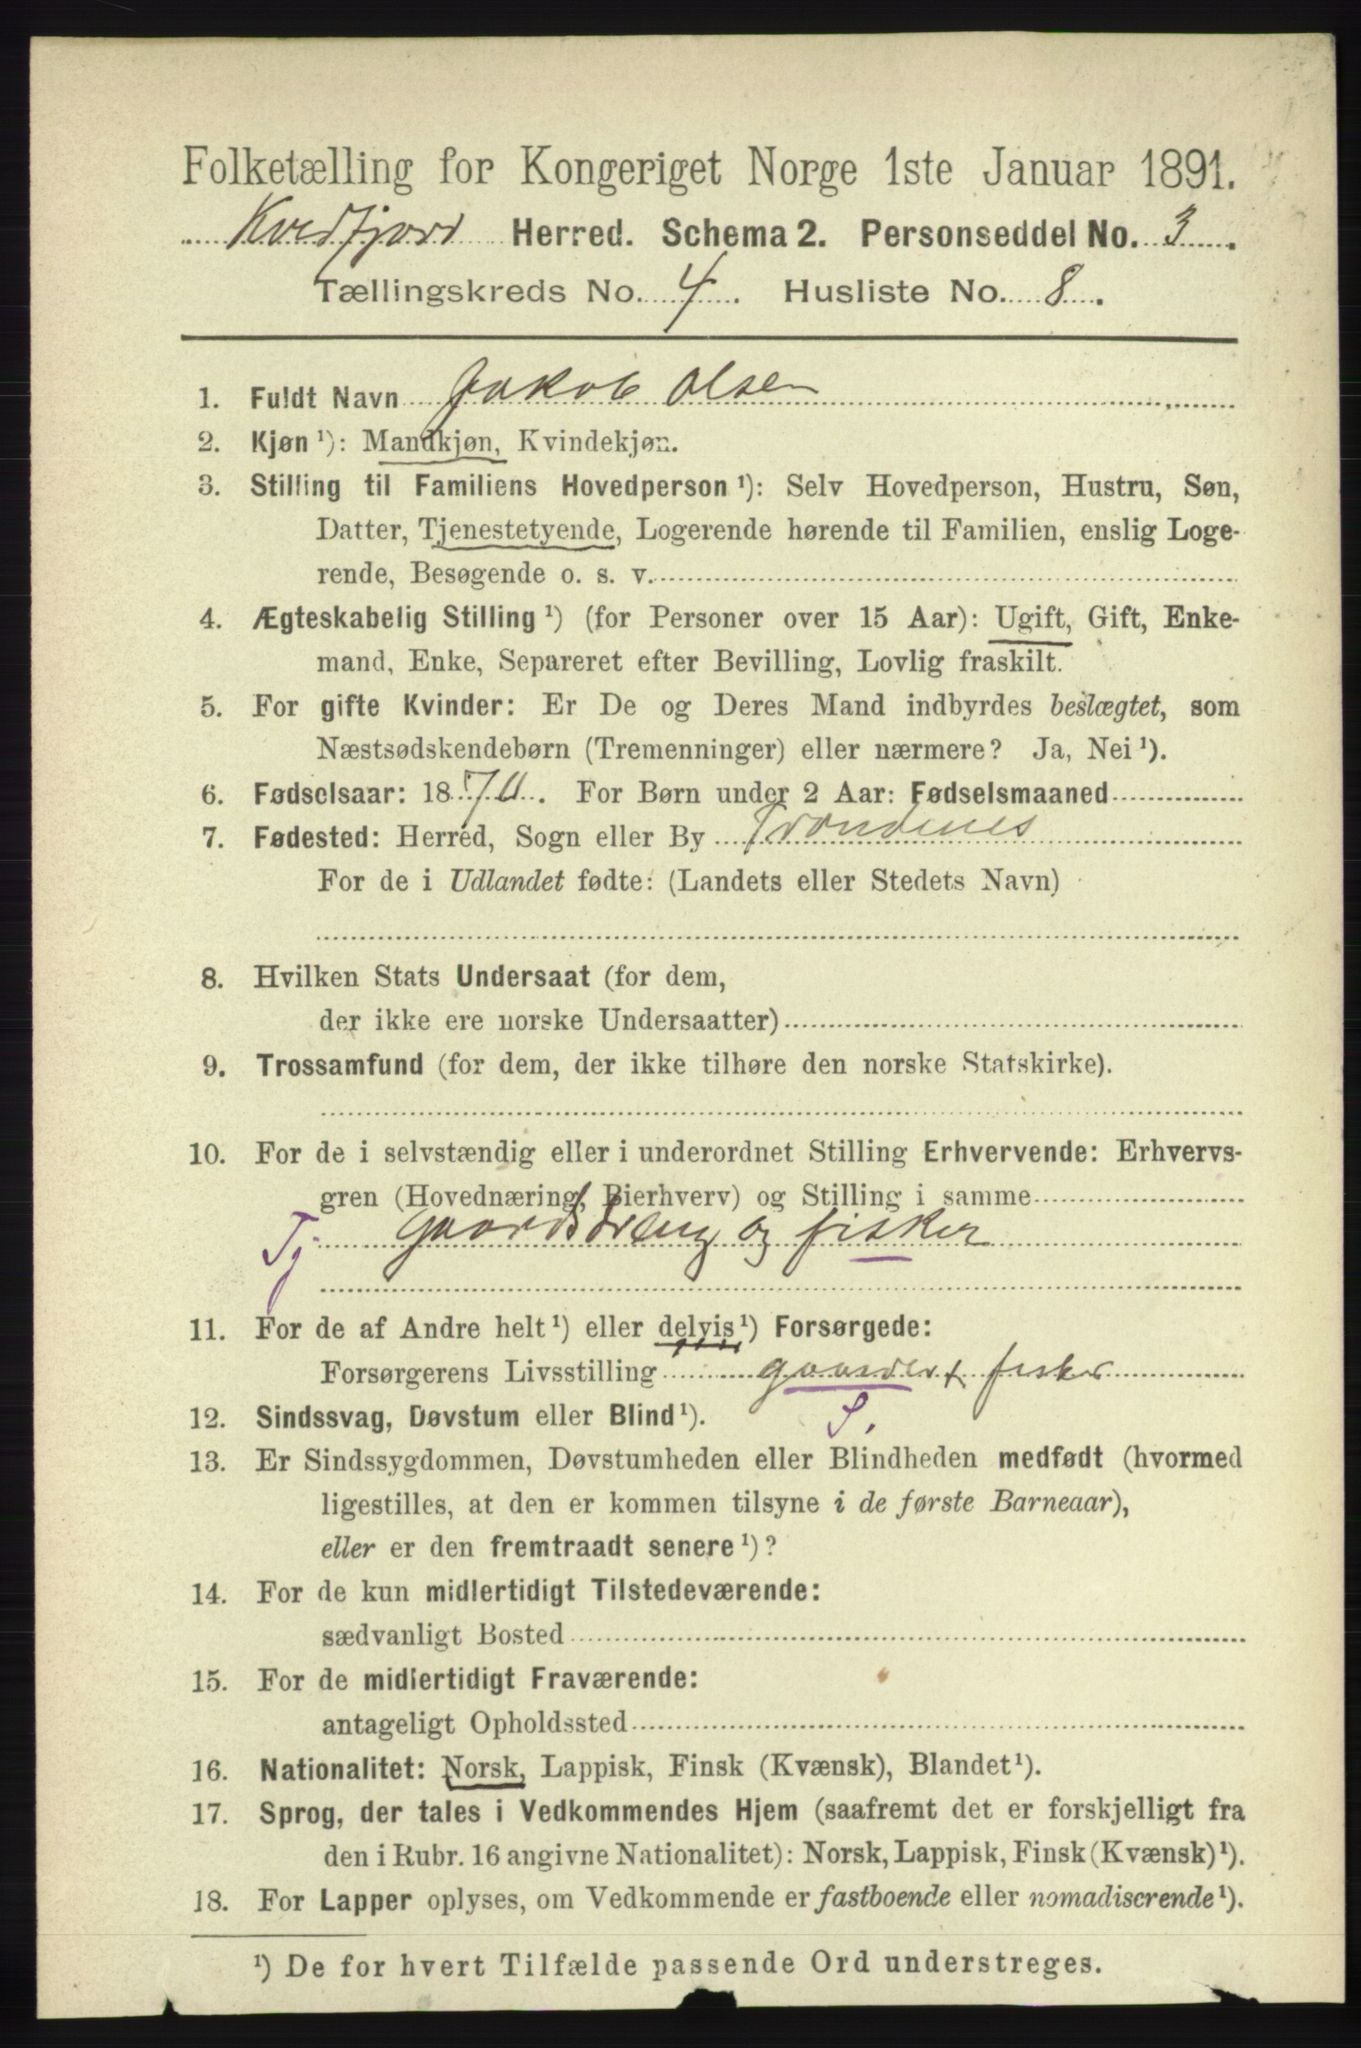 Folketælling for Kongeriget Norge 1ste Januar 1891.
Kvedfjord Herred. Schema 2. Personseddel No. 3.
Tællingskreds No. 4. Husliste No. 8.
1. Fuldt Navn Jakob Olsen
2. Kjøn ¹): Mandkjøn, Kvindekjøn.
3. Stilling til Familiens Hovedperson ¹): Selv Hovedperson, Hustru, Søn,
Datter, Tjenestetyende, Logerende hørende til Familien, enslig Loge-
rende, Besøgende o. s. v.
4. Ægteskabelig Stilling ¹) (for Personer over 15 Aar): Ugift, Gift, Enke-
mand, Enke, Separeret efter Bevilling, Lovlig fraskilt.
5. For gifte Kvinder: Er De og Deres Mand indbyrdes beslægtet, som
Næstsødskendebørn (Tremenninger) eller nærmere? Ja, Nei ¹).
6. Fødselsaar: 1870. For Børn under 2 Aar: Fødselsmaaned
7. Fødested: Herred, Sogn eller By Trondenes
For de i Udlandet fødte: (Landets eller Stedets Navn)
8. Hvilken Stats Undersaat (for dem,
der ikke ere norske Undersaatter)
9. Trossamfund (for dem, der ikke tilhøre den norske Statskirke).
10. For de i selvstændig eller i underordnet Stilling Erhvervende: Erhvervs-
gren (Hovednæring, Bierhverv) og Stilling i samme
Tj. gaardsdreng og fisker
11. For de af Andre helt ¹) eller delvis ¹) Forsørgede:
Forsørgerens Livsstilling gaardbr. fisker
12. Sindssvag, Døvstum eller Blind ¹). S.
13. Er Sindssygdommen, Døvstumheden eller Blindheden medfødt (hvormed
ligestilles, at den er kommen tilsyne i de første Barneaar),
eller er den fremtraadt senere ¹)?
14. For de kun midlertidigt Tilstedeværende:
sædvanligt Bosted
15. For de midlertidigt Fraværende:
antageligt Opholdssted
16. Nationalitet: Norsk, Lappisk, Finsk (Kvænsk), Blandet ¹).
17. Sprog, der tales i Vedkommendes Hjem (saafremt det er forskjelligt fra
den i Rubr. 16 angivne Nationalitet): Norsk, Lappisk, Finsk (Kvænsk) ¹).
18. For Lapper oplyses, om Vedkommende er fastboende eller nomadiserende ¹).
¹) De for hvert Tilfælde passende Ord understreges.